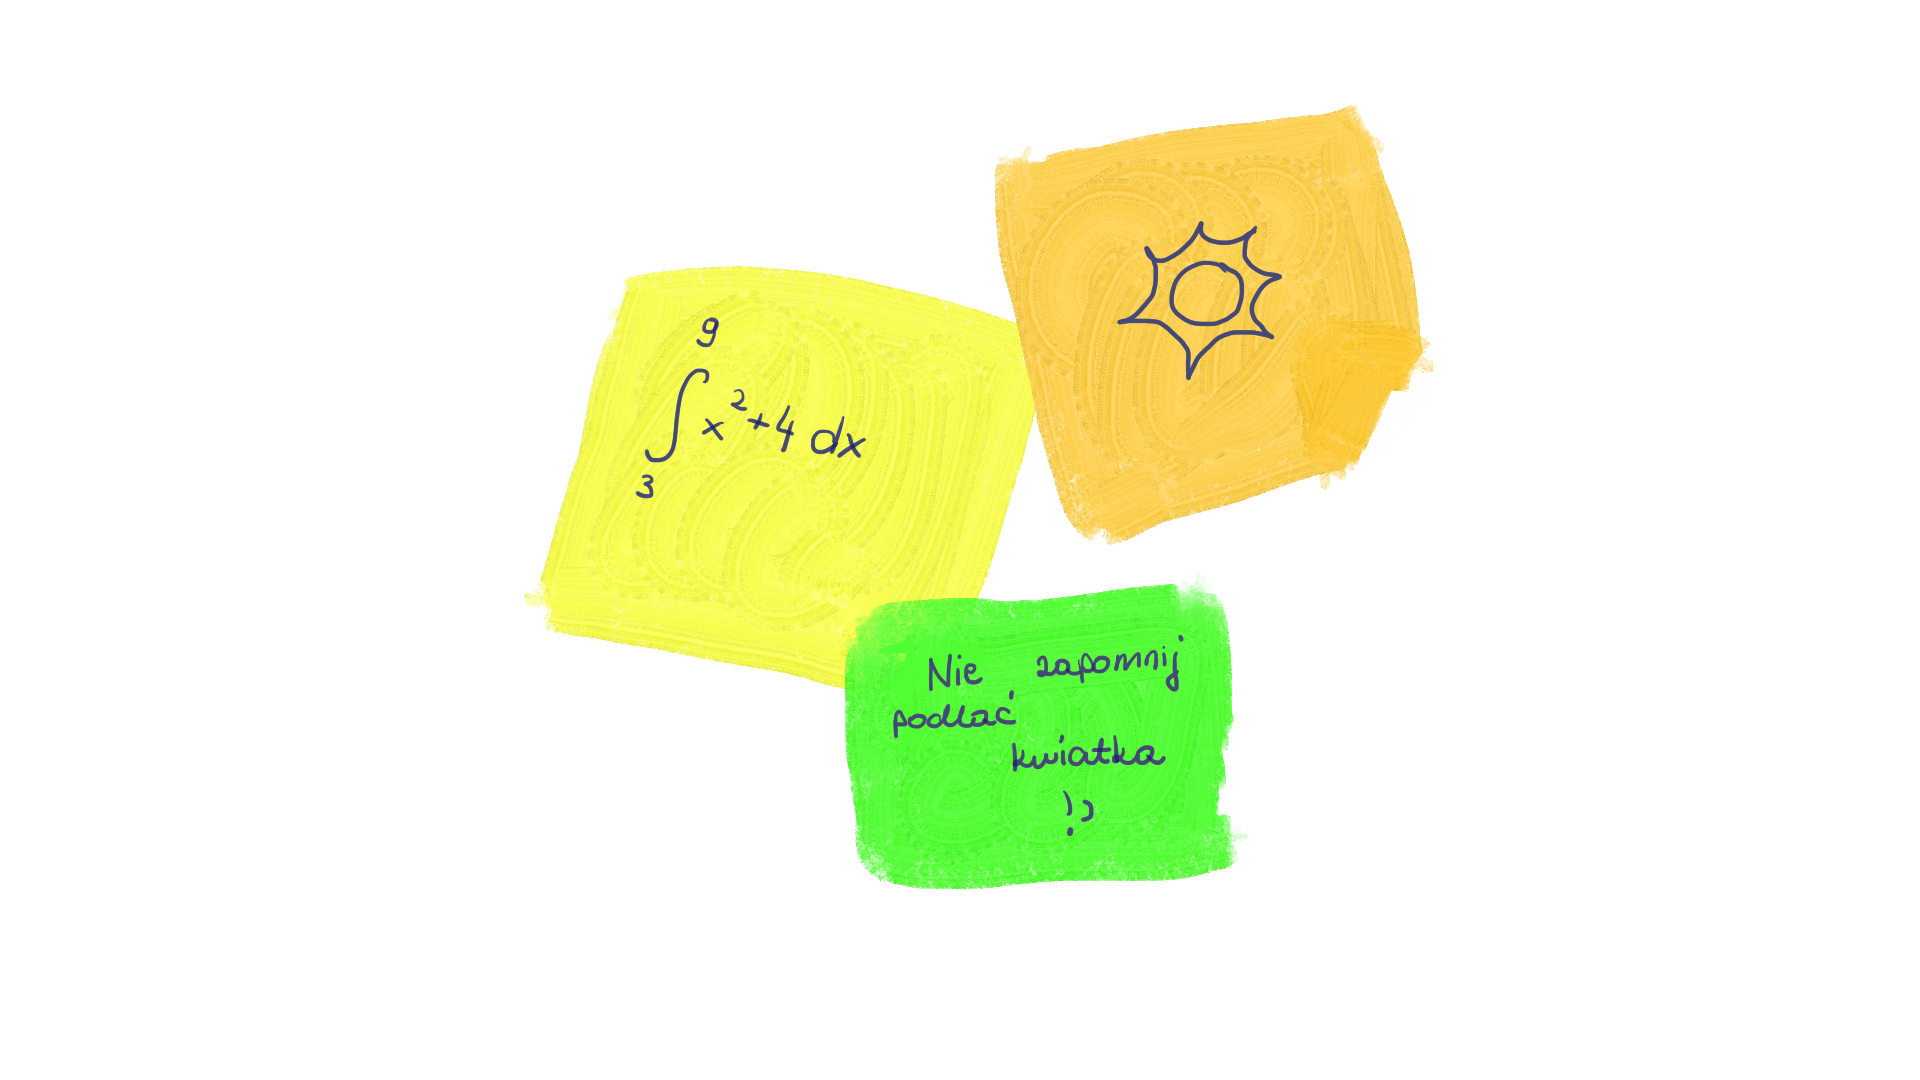 9
∫ x²+4 dx
3
Nie zapomnij
podlać
kwiatka
!